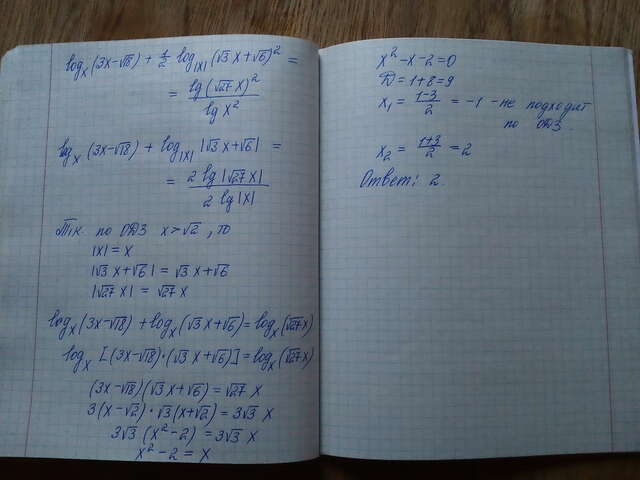 log_x (3x-√18) + 1/2 log_|x| (√3 x+√6)² =
= lg(√27 x)² / lg x²
log_x (3x-√18) + log_|x| |√3 x+√6| =
= 2 lg|√27 x| / 2 lg|x|
Т.к. по ОДЗ x>√2, то
|x| = x
|√3 x+√6| = √3 x+√6
|√27 x| = √27 x
log_x (3x-√18) + log_x (√3 x+√6) = log_x (√27 x)
log_x [(3x-√18)·(√3 x+√6)] = log_x (√27 x)
(3x-√18)(√3 x+√6) = √27 x
3(x-√2)·√3(x+√2) = 3√3 x
3√3 (x²-2) = 3√3 x
x²-2 = x
x²-x-2=0
D=1+8=9
x₁ = (1-3)/2 = -1 - не подходит
по ОДЗ.
x₂ = (1+3)/2 = 2
Ответ: 2.